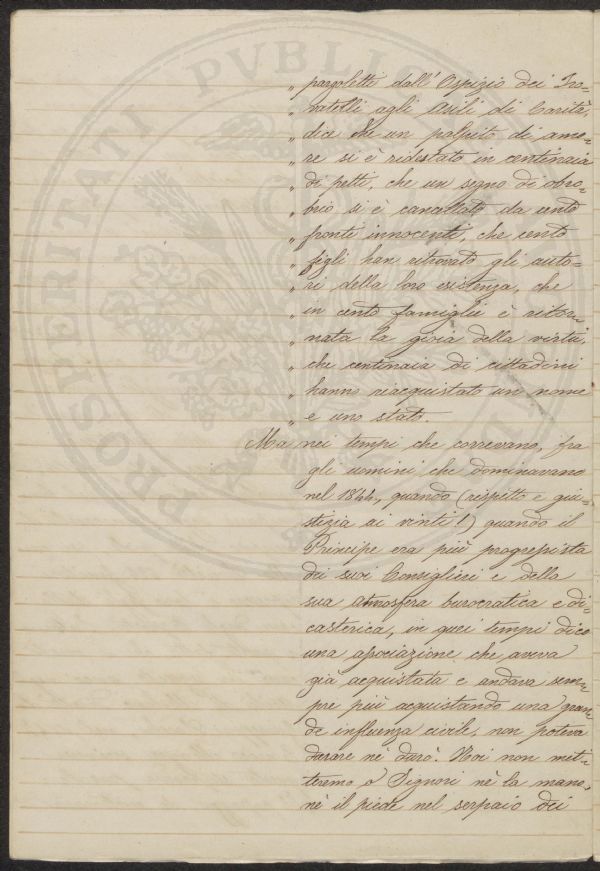 PROSPERITATI PVBLICAE
„ pargoletti dall'Ospizio dei Tro-
„ vatelli agli Asili di Carità,
„ dice che un palpito di amo-
„ re si è ridestato in centinaia
„ di petti, che un segno di obro-
„ brio si è cancellato da cento
„ fronti innocenti, che cento
„ figli han ritrovato gli auto-
„ ri della loro esistenza, che
„ in cento famiglie è ritor-
„ nata la gioia della virtù,
„ che centinaia di cittadini
„ hanno riacquistato un nome
„ e uno stato.
Ma nei tempi che correvano, fra
gli uomini che dominavano
nel 1844, quando (rispetto e giu-
stizia ai vinti!) quando il
Principe era più progressista
dei suoi Consiglieri e della
sua atmosfera burocratica e di-
casterica, in quei tempi dico
una associazione che aveva
già acquistata e andava sem-
pre più acquistando una gran-
de influenza civile, non poteva
durare nè durò. Noi non met-
teremo o Signori nè la mano,
nè il piede nel serpaio dei